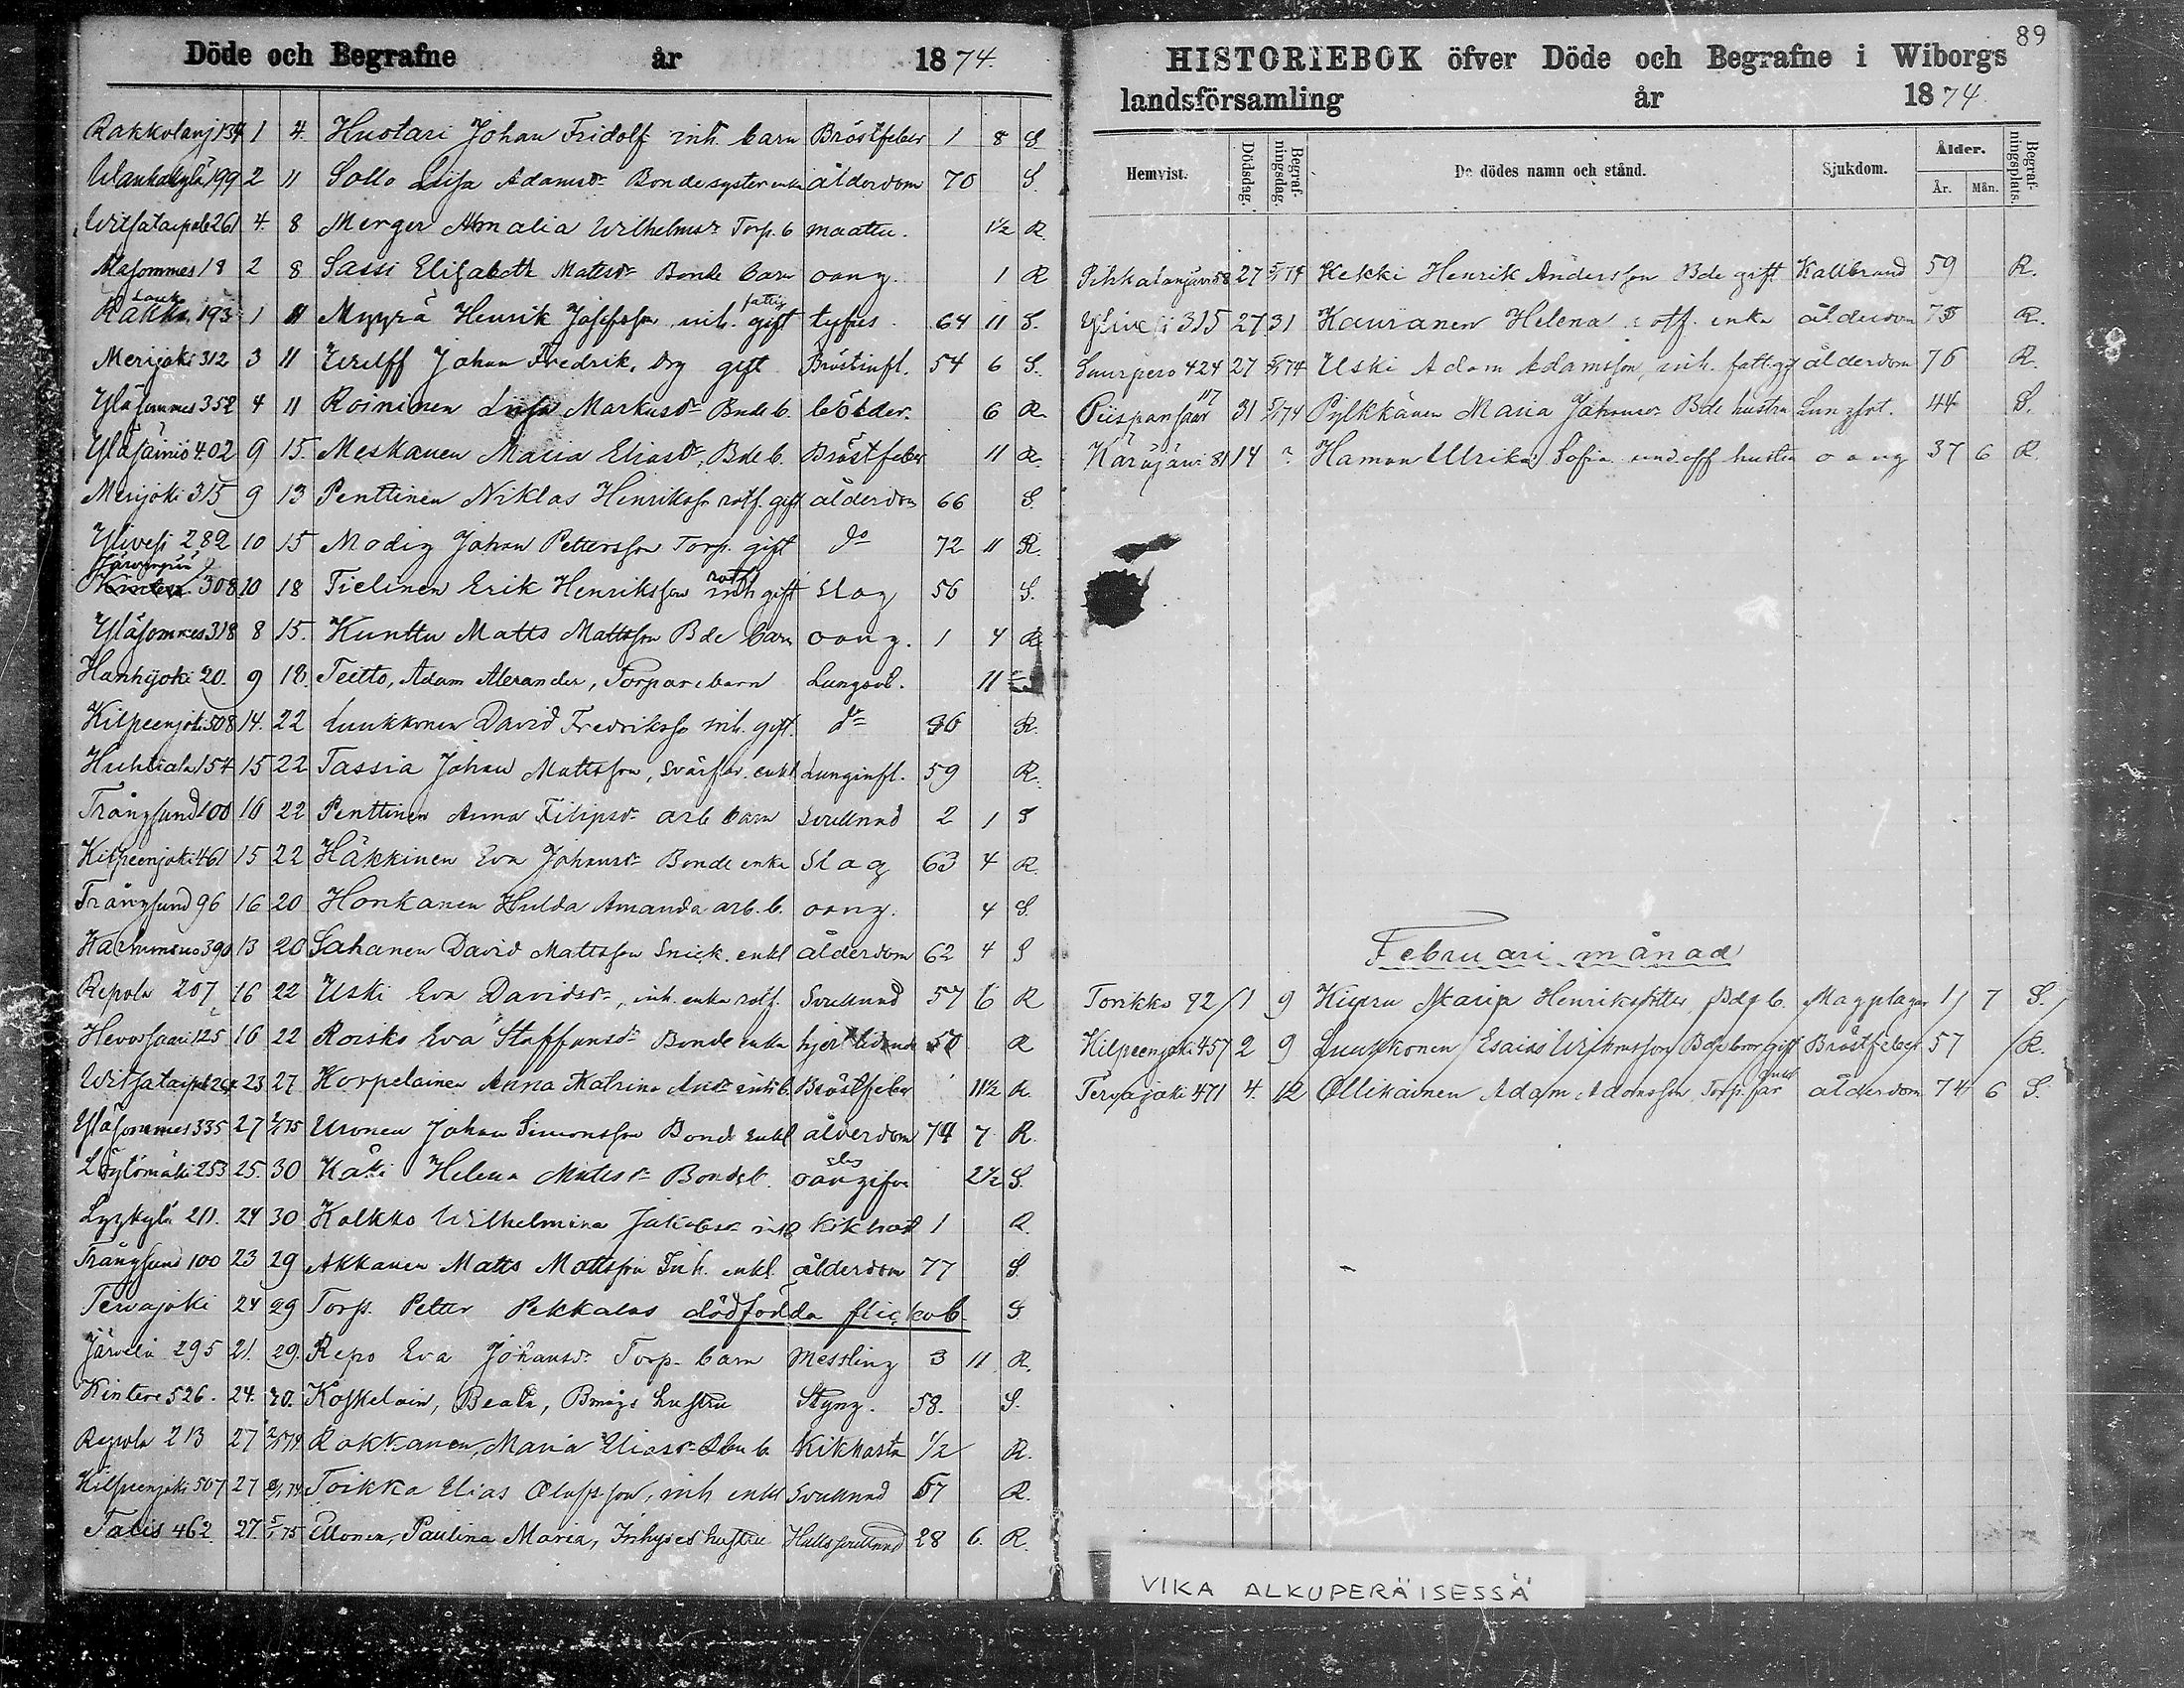 Döde och Begrafne år 1874.
Rakkolanj 134 1 4. Huotari Johan Fridolf inh. barn Bröstfeber 1 8 S
Wankakylä 199 2 11 Sollo Lisa Adamsdr Bondesyster enka ålderdom 70 S.
Witsataipale 261 4. 8 Merger Amalia Wilhelmsdr Torp. b maattu. 1½ R.
Alasommes 18 2 8 Sassi Elisabeth Mattsdr Bonde barn oang. 1 R
193 1 11 Myyrä Henrik Josefsson inh. fattig gift tyfus. 64 11 S.
Merijoki 312 3 11 Johan Fredrik. Drg gift Bröstinfl. 54 6 S.
Yläsommes 352 4 11 Roininen Lisa Markusdr Bnde b. bölder. 6 R.
Yläsäiniö 402 9 15. Meskanen Maria Eliasdr, Bde b. Bröstfeber 11 R.
Merijoki 315 9 13 Penttinen Niklas Henriksson rotf. gift ålderdom 66 S.
Ylivesi 282 10 15 Modig Johan Pettersson Torp. gift do 72 11 R.
308 10 18 Tielinen Erik Henriksson rotf gift slag 56 S.
Yläsommes 318 8 15. Kunttu Matts Mattsson Bde barn oang. 1 4 R
Hanhijoki 20. 9 18. Teitto, Adam Alexander, Torpare barn Lungsot. 11
Kilpeenjoki 508 14. 22 Luukkonen David Fredriksson inh. gift. do 36 R.
Huhtiala 154 15 22 Tassia Johan Mattsson, svärfar. enkl Lunginfl. 59 R.
Trångsund 100 16 22 Penttinen Anna Filipsdr arb barn Svullnad 2 1 S
Kilpeenjoki 461 15 22 Häkkinen Eva Johansdr Bonde enka Slag 63 4 R.
Trångsund 96 16 20 Honkanen Hulda Amanda arb. b. oang. 4 S.
Karhusuo 390 13 20 Sahanen David Mattsson Snick. enkl ålderdom 62 4 S
Repola 207 16 22 Uski Eva Davidsdr, inh. enka rotf. Svullnad 57 6 R
Hevossaari 125 16 22 Roisko Eva Staffansdr Bonde enka hjertlidande 50 R
Witsataipale 264 23 27 Korpelainen Anna Katrina Andr inh b. Bröstfeber 11½ R.
Yläsommes 335 27 2/1 75 Uronen Johan Simonsson Bonde enkl ålderdom 74 7 R.
Löytömäki 253 25. 30 Käki Helena Mattsdr Bonde b. oangifven slag 2½ S.
Lyykylä 211. 24 30 Kolkko Wilhelmina Jakobsdr inh b kikhost 1 R.
Trångsund 100 23 29 Akkanen Matts Mattsson Inh. enkl. ålderdom 77 S.
Tervajoki 24 29 Torp. Petter Pekkalas dödfödda flickob. S
Järvelä 295 21. 29. Repo Eva Johansdr Torp. barn Messling 3 11 R.
Kintere 526. 24. 30. Koskelain, Beata, hustru Styng. 58. S.
Repola 213 27 2/1 74 Rakkanen, Maria Eliasdr b. Kikhosta ½ R.
Kilpeenjoki 507 27 2/1 74 Toikka Elias Olofsson, inh enkl Svullnad 57 R.
Talis 462. 27. 5/1 75 Ellonen, Paulina Maria, Inhyses hustru Halssvullnad 28 6. R.
89
HISTORIEBOK öfver Döde och Begrafne i Wiborgs
landsförsamling år 1874.
Hemvist. Dödsdag. Begrafningsdag. De dödes namn och stånd. Sjukdom. Ålder. År. Mån. Begrafningsplats.
Pihkalanjärvi 58 27 5/1 74 Kekki Henrik Andersson Bde gift Kallbrand 59 R.
Ylivesi 315 27 31 Kauranen Helena rotf. enka ålderdom 75 R.
Suurpero 424 27 74 Uski Adam Adamsson, inh. fatt. gift ålderdom 76 R.
Piispansaari 117 31 74 Pylkkänen Maria Johansdr Bde hustru Lungsot. 44 S.
Kärsjärvi 81 14 ? Haman Ulrika Sofia und.off hustru oang 37 6 R.
Februari månad
Torikka 92 1 9 Kiuru Maria Henriksdotter Bde b. Magplågor 1 7 S.
Kilpeenjoki 457 2 9 Luukkonen Esaias Wilhelmsson Bde bror gift Bröstfeber 57 R.
Tervajoki 471 4. 12 Ollikainen Adam Adamsson Torp. far enkl ålderdom 74 6 S.
VIKA ALKUPERÄISESSÄ